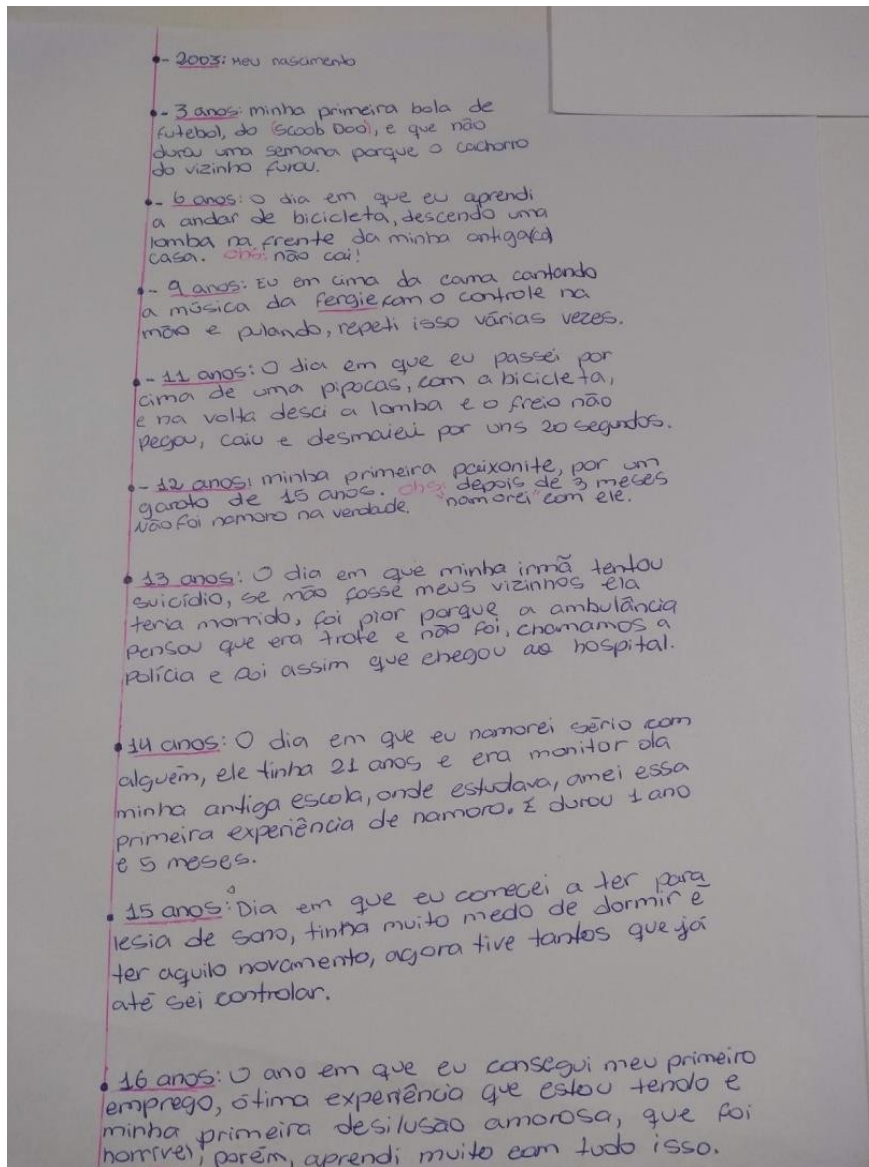 - 2003: Meu nascimento
- 3 anos: minha primeira bola de
futebol, do (Scoob Doo), e que não
durou uma semana porque o cachorro
do vizinho furou.
- 6 anos: O dia em que eu aprendi
a andar de bicicleta, descendo uma
lomba na frente da minha antiga
casa. obs: não cai!
- 9 anos: Eu em cima da cama cantando
a música da fergie com o controle na
mão e pulando, repeti isso várias vezes.
- 11 anos: O dia em que eu passei por
cima de uma pipocas, com a bicicleta,
e na volta desci a lomba e o freio não
pegou, caiu e desmaiei por uns 20 segundos.
- 12 anos: minha primeira paixonite, por um
garoto de 15 anos. obs: depois de 3 meses
"namorei" com ele.
Não foi namoro na verdade.
13 anos: O dia em que minha irmã tentou
suicídio, se não fosse meus vizinhos ela
teria morrido, foi pior porque a ambulância
pensou que era trote e não foi, chamamos a
polícia e foi assim que chegou ao hospital.
14 anos: O dia em que eu namorei sério com
alguém, ele tinha 21 anos, e era monitor da
minha antiga escola, onde estudava, amei essa
primeira experiência de namoro. E durou 1 ano
e 5 meses.
15 anos: o Dia em que eu comecei a ter para
lesia de sono, tinha muito medo de dormir e
ter aquilo novamento, agora tive tantos que já
até sei controlar.
16 anos: O ano em que eu consegui meu primeiro
emprego, ótima experiência que estou tendo e
minha primeira desilusão amorosa, que foi
horrível, porém, aprendi muito com tudo isso.